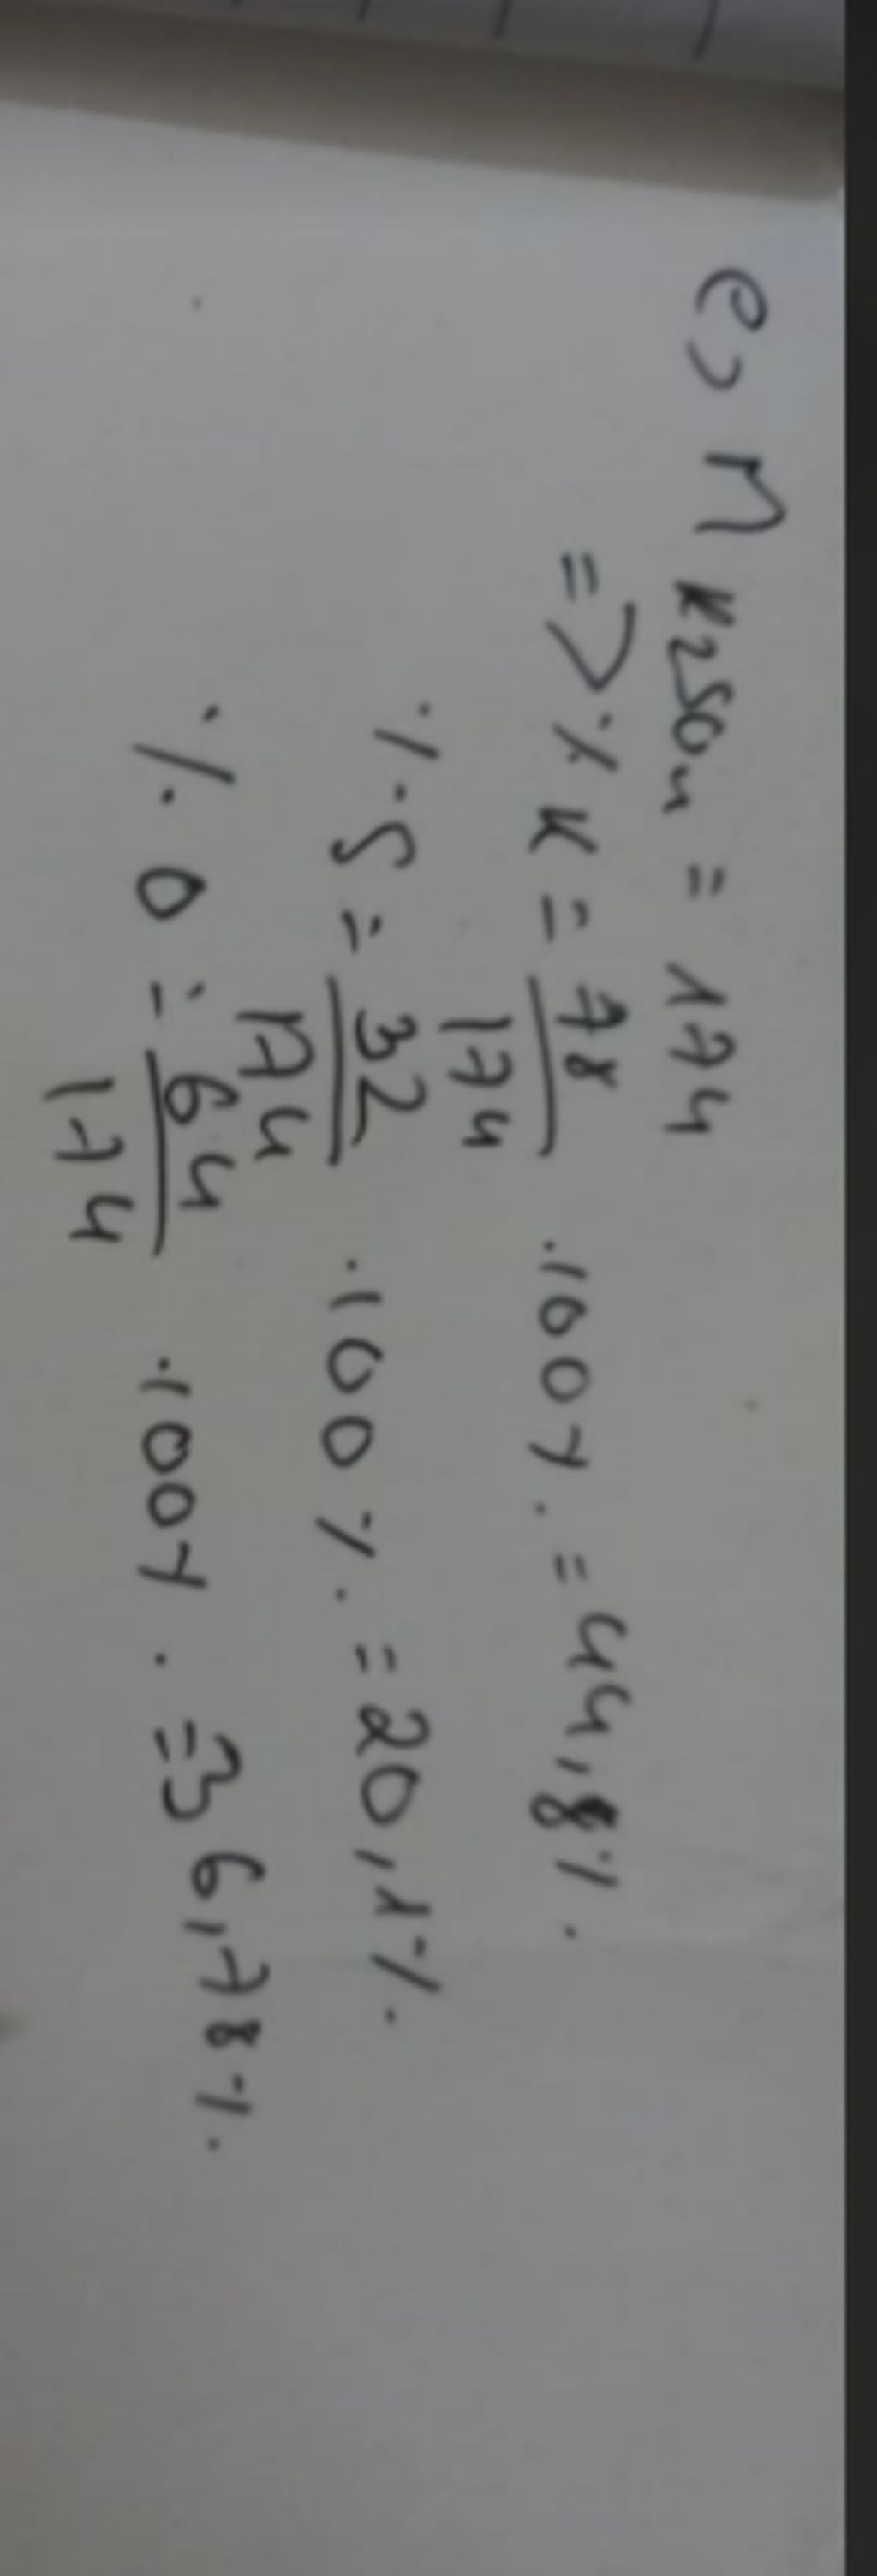 e) M K2SO4 = 174
=> % K = 78/174 .100% = 44,8%.
% S = 32/174 .100% = 20,1%.
% O = 64/174 .100% = 36,78%.